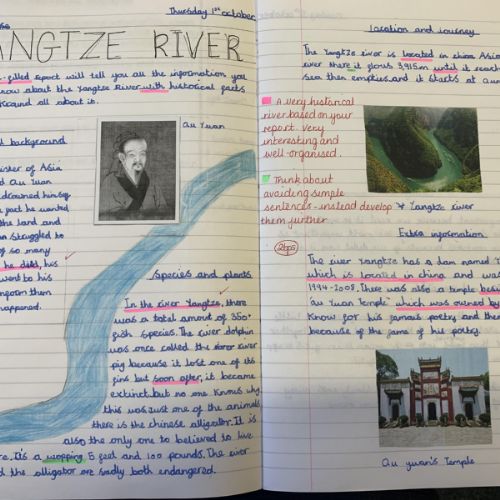 Thursday 1st october
YANGTZE RIVER
-filled report will tell you all the information you
know about the Yangtze River with historical facts
ground all about it.
background
Qu Yuan
ister of Asia
d Qu Yuan
drowned himself
fact he wanted
the land and
n struggled to
of so many
he died, his
went to his
inform them
happened.
Species and plants
In the river Yangtze, there
was a total amont of 350+
fish species. The river dolphin
was once called the river
pig because it lost one of its
fins but soon after, it became
extinct but no one knows why
this was just one of the animals
there is the chinese alligator. It is
also the only one to believed to live
re. It's a wopping 5 feet and 100 pounds. The river
d the alligator are sadly both endangered.
Location and journey
The Yangtze river is located in china Asia
river there it flows 3,915m until it reach
sea then empties and it starts at
A very historical
river based on your
report. Very
interesting and
well-organised.
Think about
avoiding simple
sentences - instead develop
them further.
Yangtze river
2hps
Extra information
The river Yangtze has a dam named
which is located in china and was
1994-2008. There was also a temple
"Qu Yuan Temple" which was owned by
know for his famous poetry and the
because of the fame of his poetry.
Qu yuan's Temple